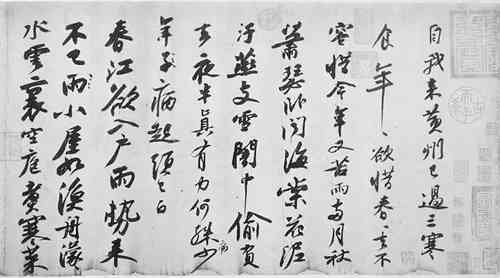 自我來黃州已過三寒
食年〻欲惜春〻去不
容惜今年又苦雨兩月秋
蕭瑟卧聞海棠花泥
汙燕支雪闇中偷負
去夜半真有力何殊少
病
年子病起頭已白
春江欲入戶雨勢來
不已雨小屋如漁舟濛〻
水雲裏空庖煮寒菜